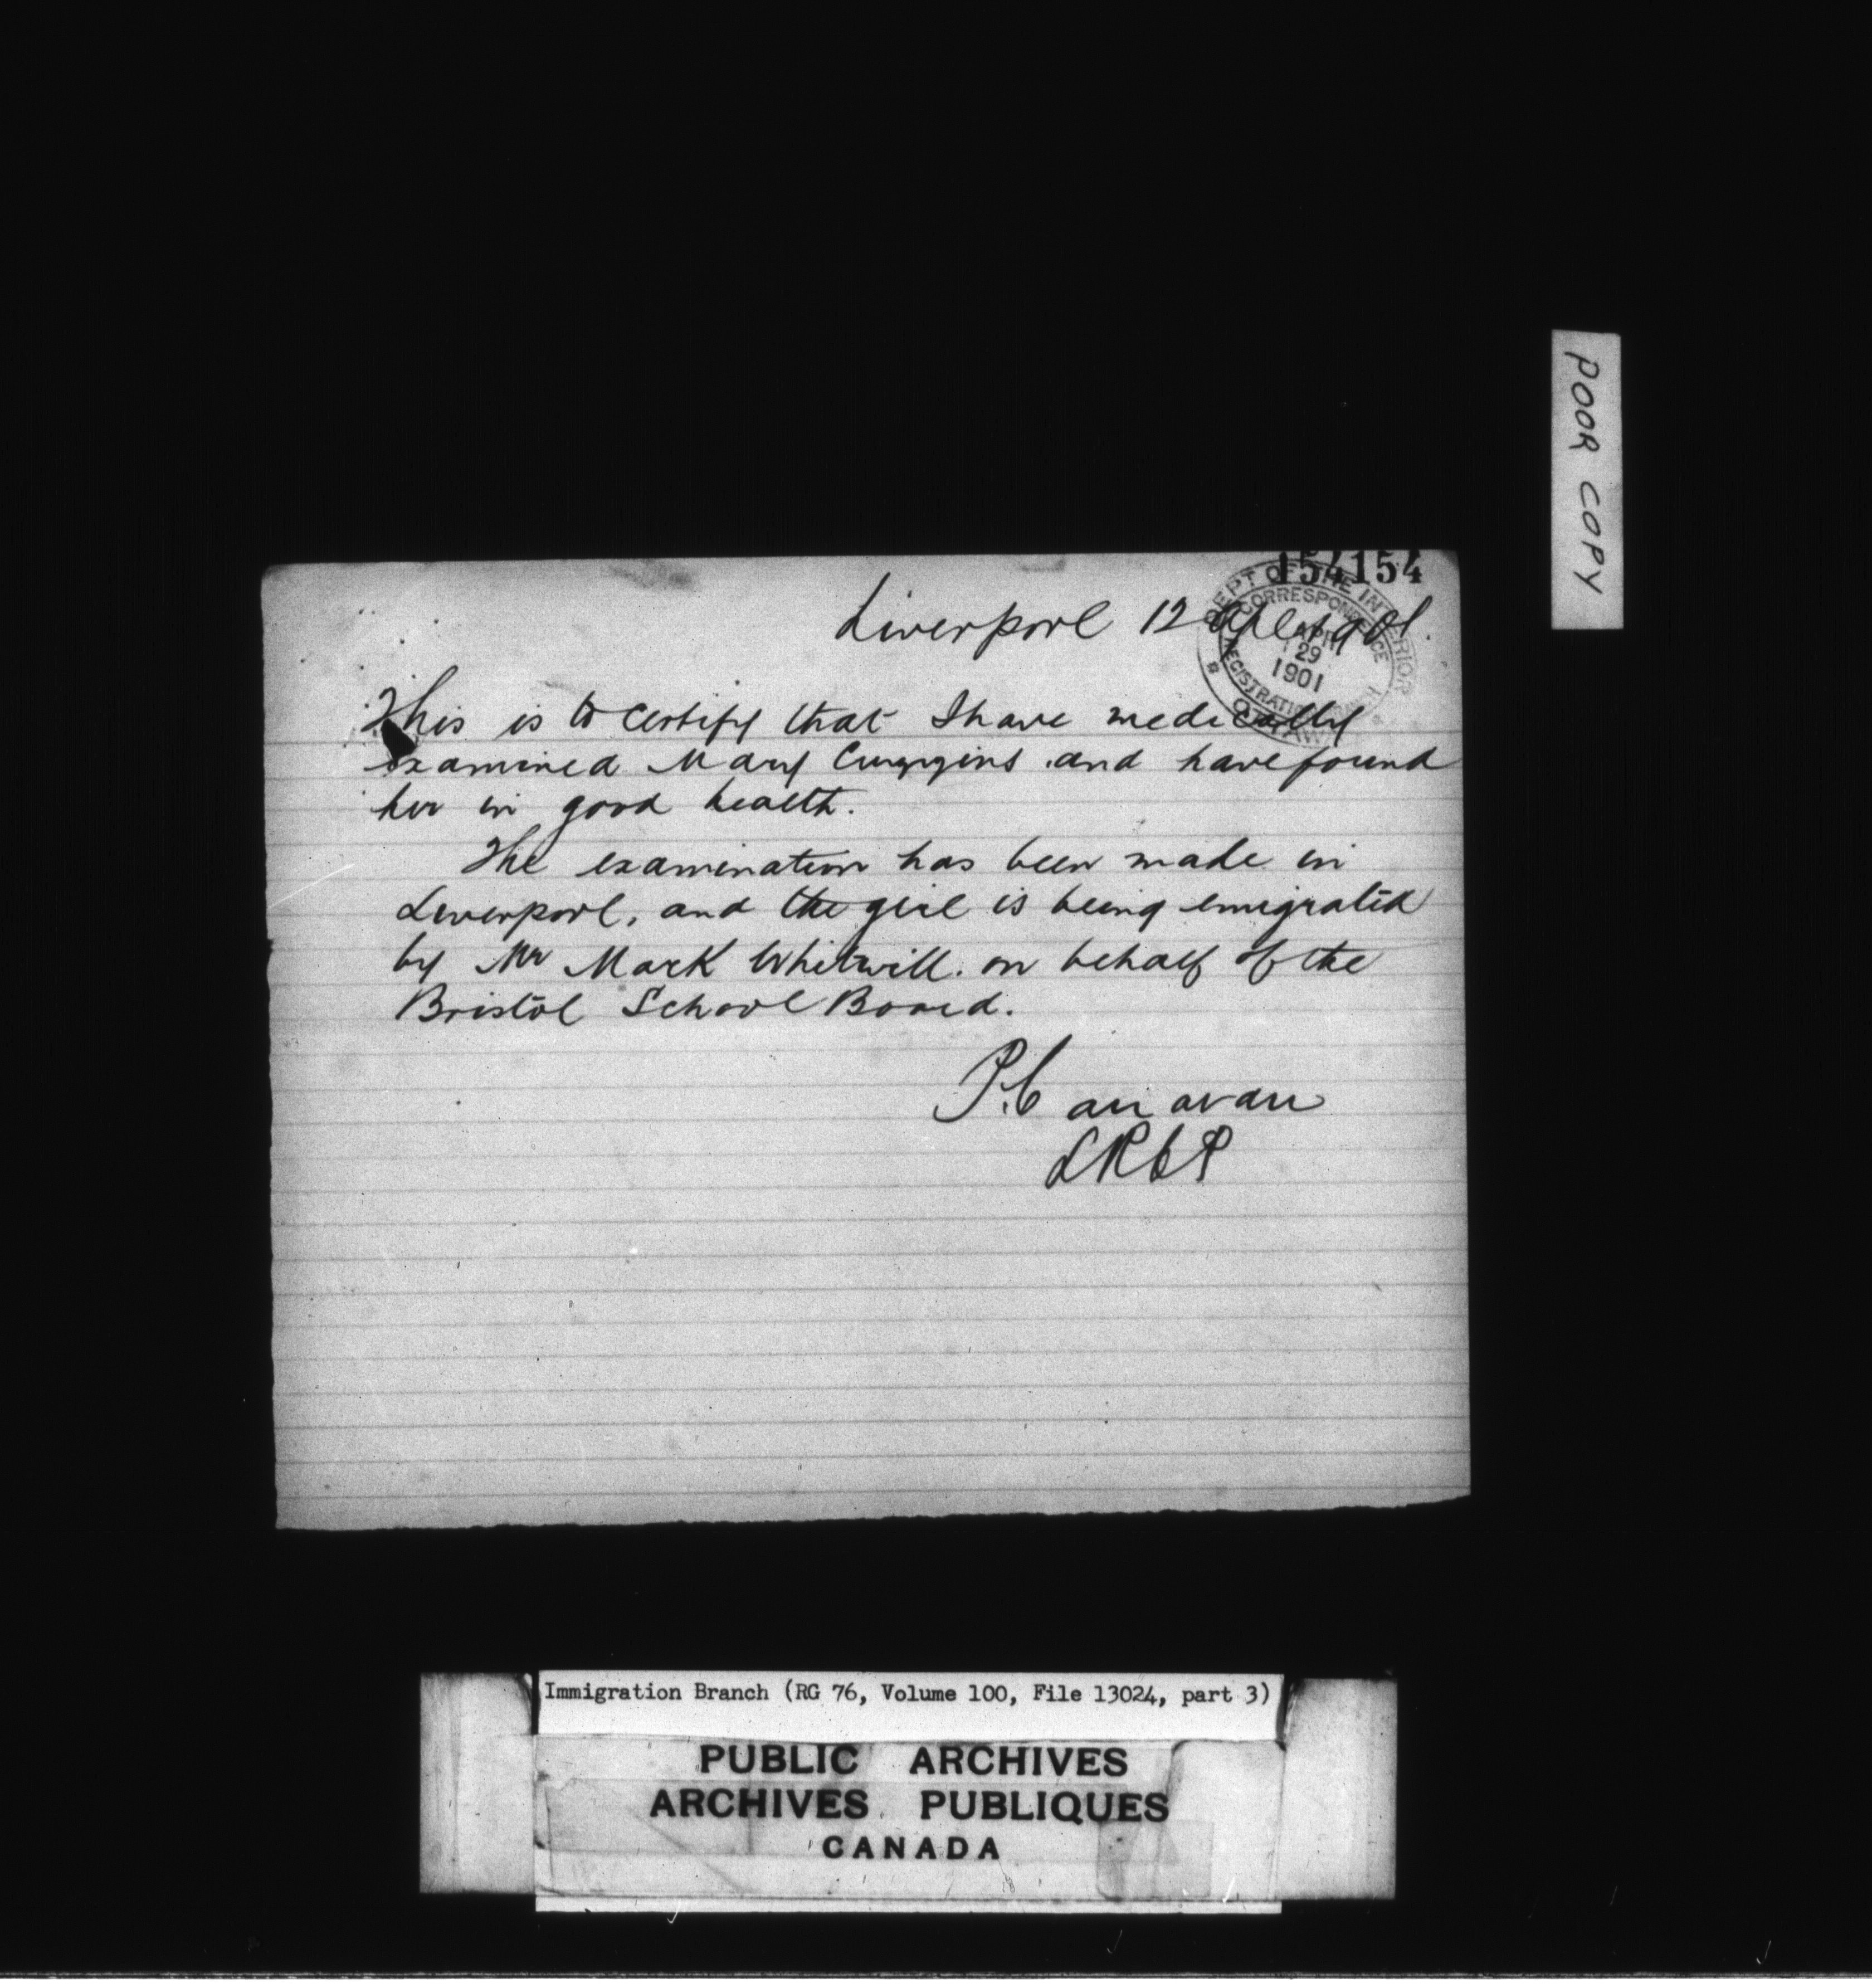 154154
DEPT OF THE INTERIOR
CORRESPONDENCE
APR
29
1901
REGISTRATION
OTTAWA
Liverpool 12 Apl 1901.
This is to certify that I have medically
examined Mary and have found
her in good health.
The examination has been made in
Liverpool, and the girl is being emigrated
by Mr Mark Whitwill. on behalf of the
Bristol School Board.
P. Canavan
LRCP
POOR COPY
Immigration Branch (RG 76, Volume 100, File 13024, part 3)
PUBLIC ARCHIVES
ARCHIVES PUBLIQUES
CANADA